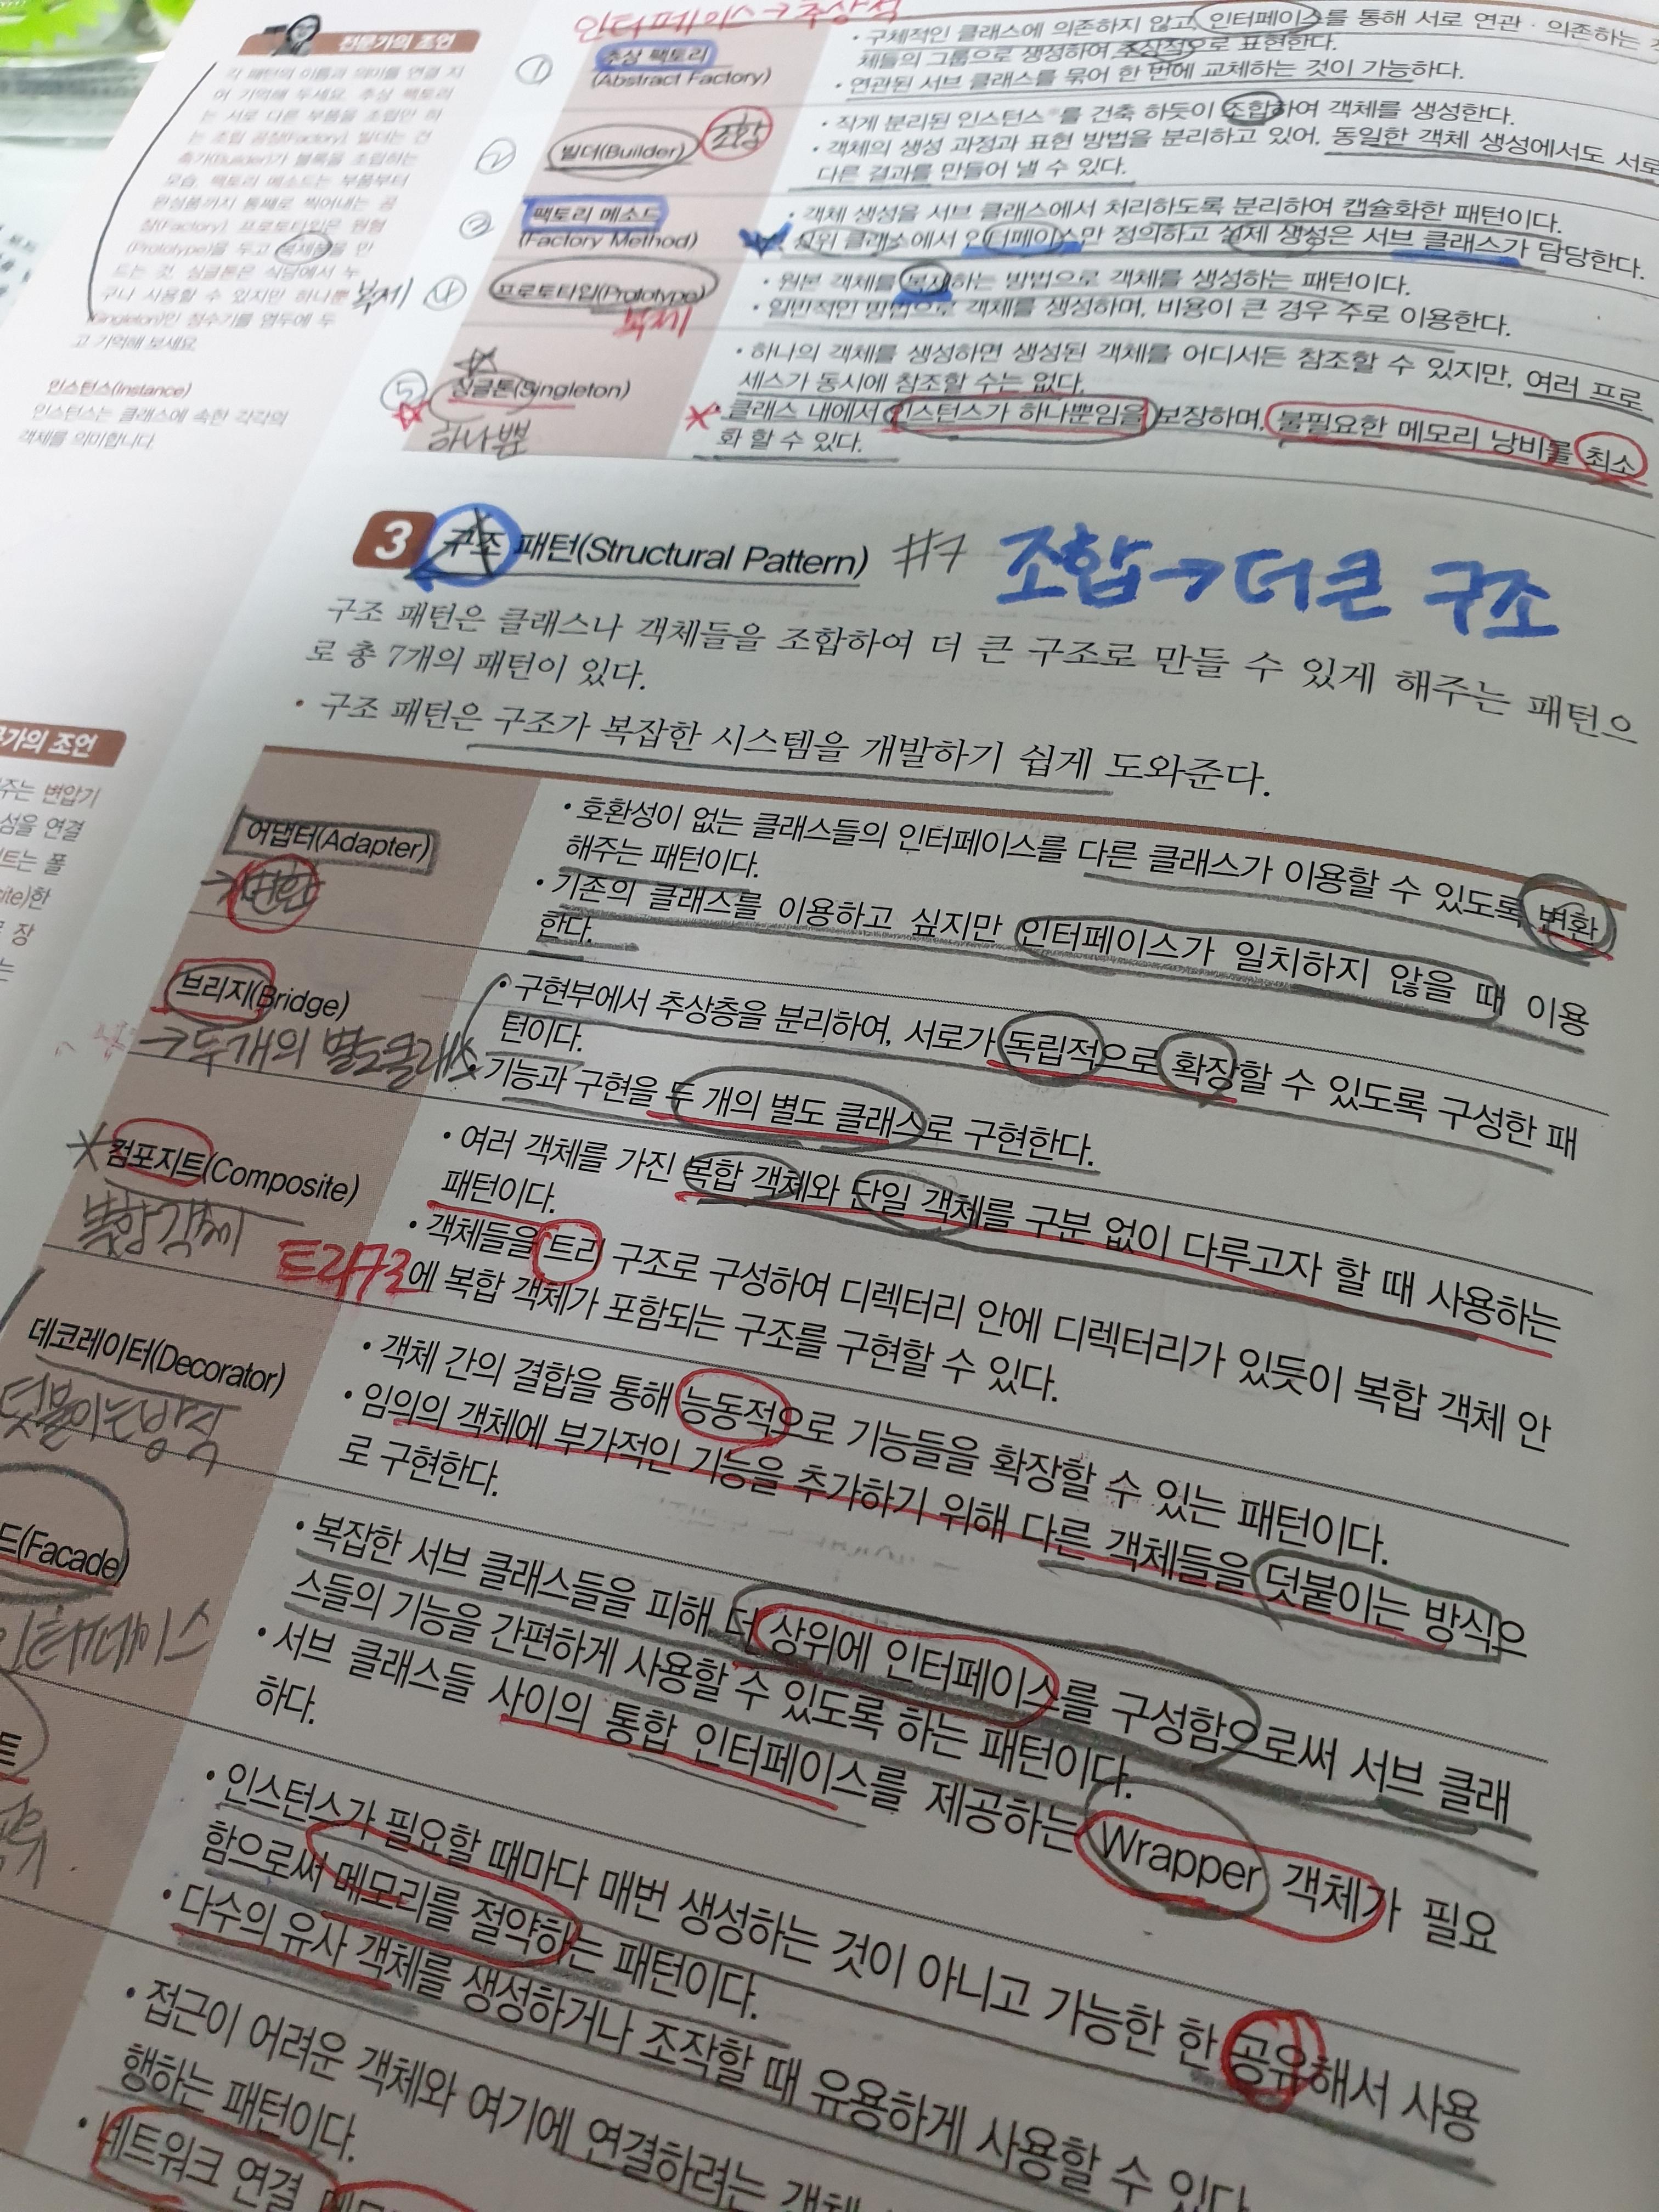 인터페이스→추상적
전문가의 조언
각 패턴의 이름과 의미를 연결 지
어 기억해 두세요. 추상 팩토리
는 서로 다른 부품을 조립만 하
는 조립 공장(Factory), 빌더는 건
축가(Builder)가 블록을 조립하는
모습, 팩토리 메소드는 부품부터
완성품까지 통째로 찍어내는 공
장(Factory), 프로토타입은 원형
(Prototype)을 두고 복제품을 만
드는 것, 싱글톤은 식당에서 누
구나 사용할 수 있지만 하나뿐
(Singleton)인 정수기를 염두에 두
고 기억해 보세요.
인스턴스(Instance)
인스턴스는 클래스에 속한 각각의
객체를 의미합니다.
① 추상 팩토리
(Abstract Factory)
• 구체적인 클래스에 의존하지 않고, 인터페이스를 통해 서로 연관·의존하는
체들의 그룹으로 생성하여 추상적으로 표현한다.
• 연관된 서브 클래스를 묶어 한 번에 교체하는 것이 가능하다.
② 빌더(Builder) 조합
• 작게 분리된 인스턴스를 건축 하듯이 조합하여 객체를 생성한다.
• 객체의 생성 과정과 표현 방법을 분리하고 있어, 동일한 객체 생성에서도 서로
다른 결과를 만들어 낼 수 있다.
③ 팩토리 메소드
(Factory Method)
• 객체 생성을 서브 클래스에서 처리하도록 분리하여 캡슐화한 패턴이다.
• 상위 클래스에서 인터페이스만 정의하고 실제 생성은 서브 클래스가 담당한다.
복제 ④ 프로토타입(Prototype)
복제
• 원본 객체를 복제하는 방법으로 객체를 생성하는 패턴이다.
• 일반적인 방법으로 객체를 생성하며, 비용이 큰 경우 주로 이용한다.
⑤ 싱글톤(Singleton)
하나뿐
• 하나의 객체를 생성하면 생성된 객체를 어디서든 참조할 수 있지만, 여러 프로
세스가 동시에 참조할 수는 없다.
• 클래스 내에서 인스턴스가 하나뿐임을 보장하며, 불필요한 메모리 낭비를 최소
화 할 수 있다.
3 구조 패턴(Structural Pattern) #7 조합→더 큰 구조
구조 패턴은 클래스나 객체들을 조합하여 더 큰 구조로 만들 수 있게 해주는 패턴으
로 총 7개의 패턴이 있다.
• 구조 패턴은 구조가 복잡한 시스템을 개발하기 쉽게 도와준다.
가의 조언
주는 변압기
섬을 연결
트는 폴
site)한
장
는
어댑터(Adapter)
→변환
• 호환성이 없는 클래스들의 인터페이스를 다른 클래스가 이용할 수 있도록 변환
해주는 패턴이다.
• 기존의 클래스를 이용하고 싶지만 인터페이스가 일치하지 않을 때 이용
한다.
브리지(Bridge)
→두개의 별도클래스
• 구현부에서 추상층을 분리하여, 서로가 독립적으로 확장할 수 있도록 구성한 패
턴이다.
• 기능과 구현을 두 개의 별도 클래스로 구현한다.
컴포지트(Composite)
복합객체
트리구조
• 여러 객체를 가진 복합 객체와 단일 객체를 구분 없이 다루고자 할 때 사용하는
패턴이다.
• 객체들을 트리 구조로 구성하여 디렉터리 안에 디렉터리가 있듯이 복합 객체 안
에 복합 객체가 포함되는 구조를 구현할 수 있다.
데코레이터(Decorator)
덧붙이는방식
• 객체 간의 결합을 통해 능동적으로 기능들을 확장할 수 있는 패턴이다.
• 임의의 객체에 부가적인 기능을 추가하기 위해 다른 객체들을 덧붙이는 방식으
로 구현한다.
드(Facade)
인터페이스
• 복잡한 서브 클래스들을 피해 더 상위에 인터페이스를 구성함으로써 서브 클래
스들의 기능을 간편하게 사용할 수 있도록 하는 패턴이다.
• 서브 클래스들 사이의 통합 인터페이스를 제공하는 Wrapper 객체가 필요
하다.
트
• 인스턴스가 필요할 때마다 매번 생성하는 것이 아니고 가능한 한 공유해서 사용
함으로써 메모리를 절약하는 패턴이다.
• 다수의 유사 객체를 생성하거나 조작할 때 유용하게 사용할 수 있다.
• 접근이 어려운 객체와 여기에 연결하려는 객체
행하는 패턴이다.
• 네트워크 연결,